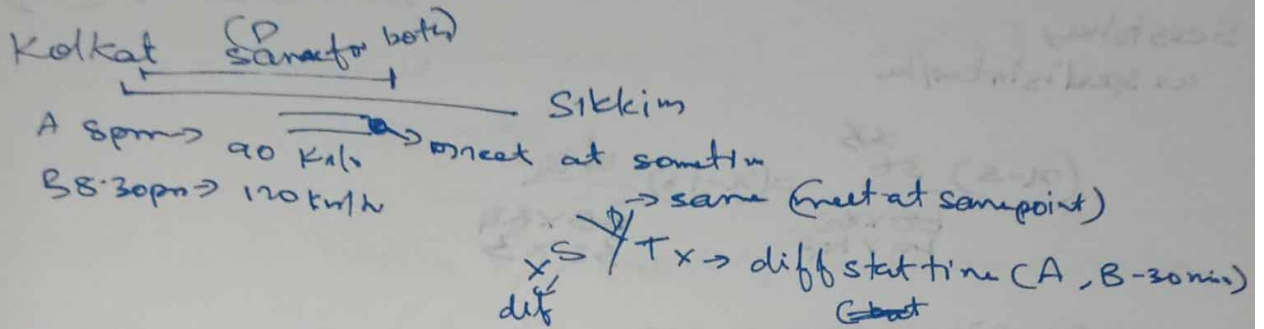 Kolkat (D same for both)
Sikkim
A 8pm → 90 Km/h → meet at sometim
B 8.30pm → 120 km/h
→ same (meet at same point)
x S D/T x → diff stat time (A, B-30min)
dif